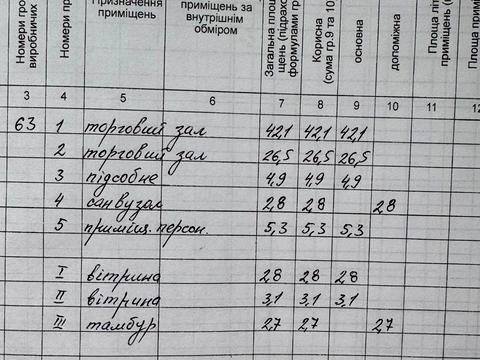 Номери гро
виробничих
Номери пр
Призначення
приміщень
приміщень за
внутрішнім
обміром
Загальна площ
щень (підрахо
формулами гр
Корисна
(сума гр.9 та 10
основна
допоміжна
Площа літ
приміщень (
Площа прим
3 4 5 6 7 8 9 10 11 12
63 1 торговий зал 42,1 42,1 42,1
2 торговий зал 26,5 26,5 26,5
3 підсобне 4,9 4,9 4,9
4 санвузал 2,8 2,8 2,8
5 приміщ. персон. 5,3 5,3 5,3
I вітрина 2,8 2,8 2,8
II вітрина 3,1 3,1 3,1
III тамбур 2,7 2,7 2,7